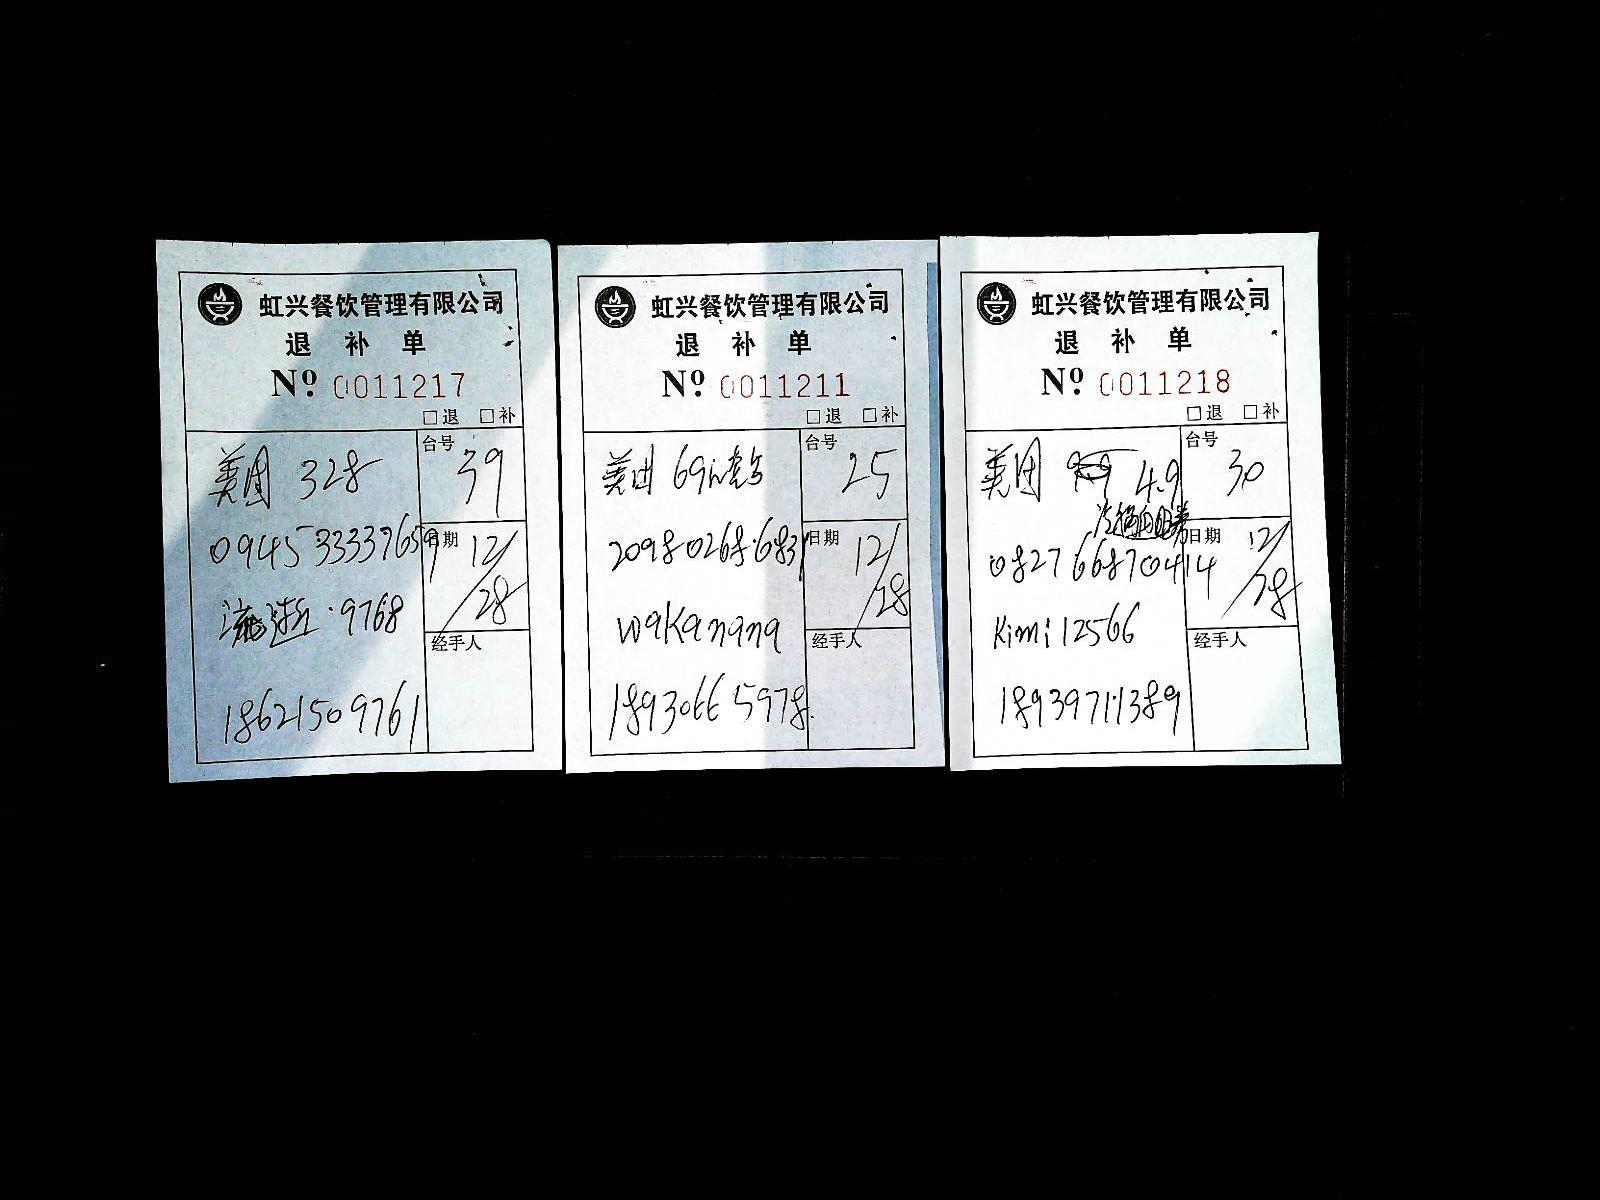 虹兴餐饮管理有限公司
退 补 单
Nº 0011217
□退 □补
美团 328
台号
39
0945 333376591
日期
12/28
9768
经手人
18621509761
虹兴餐饮管理有限公司
退 补 单
Nº 0011211
□退 □补
美团 69
台号
25
2098 0268 6831
日期
12/28
wakanana
经手人
18930665978
虹兴餐饮管理有限公司
退 补 单
Nº 0011218
□退 □补
美团 4.9
台号
30
0827 66870414
日期
12/28
Kimi12566
经手人
18939711389